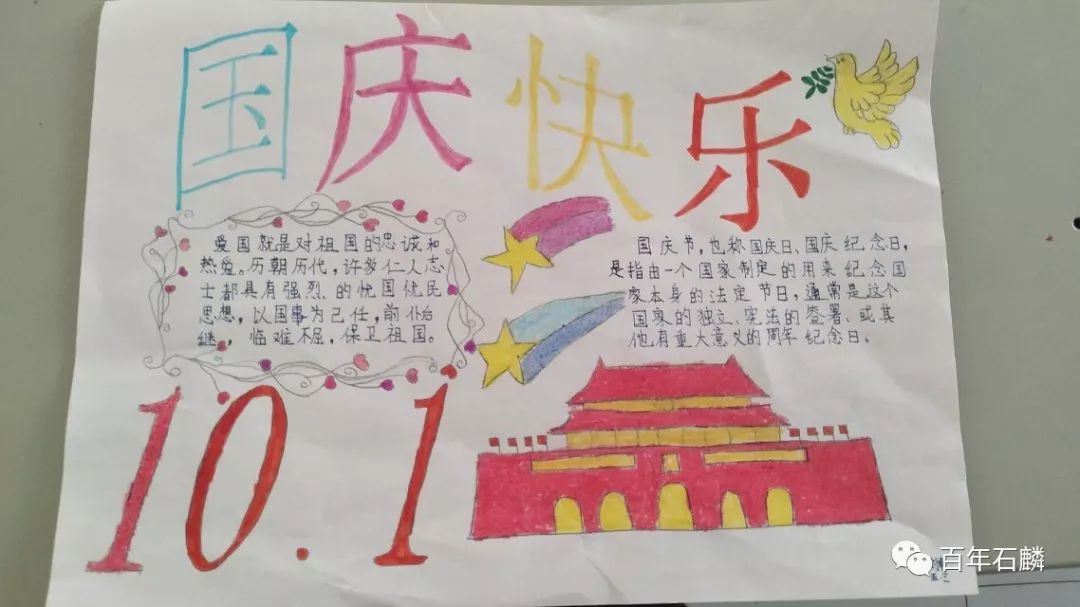 国庆快乐
爱国就是对祖国的忠诚和
热爱。历朝历代，许多仁人志
士都具有强烈、的忧国忧民
思想，以国事为己任，前仆后
继，临难不屈，保卫祖国。
国庆节，也称国庆日、国庆纪念日，
是指由一个国家制定的用来纪念国
家本身的法定节日，通常是这个
国家的独立、宪法的签署、或其
他有重大意义的周年纪念日。
10.1
百年石麟